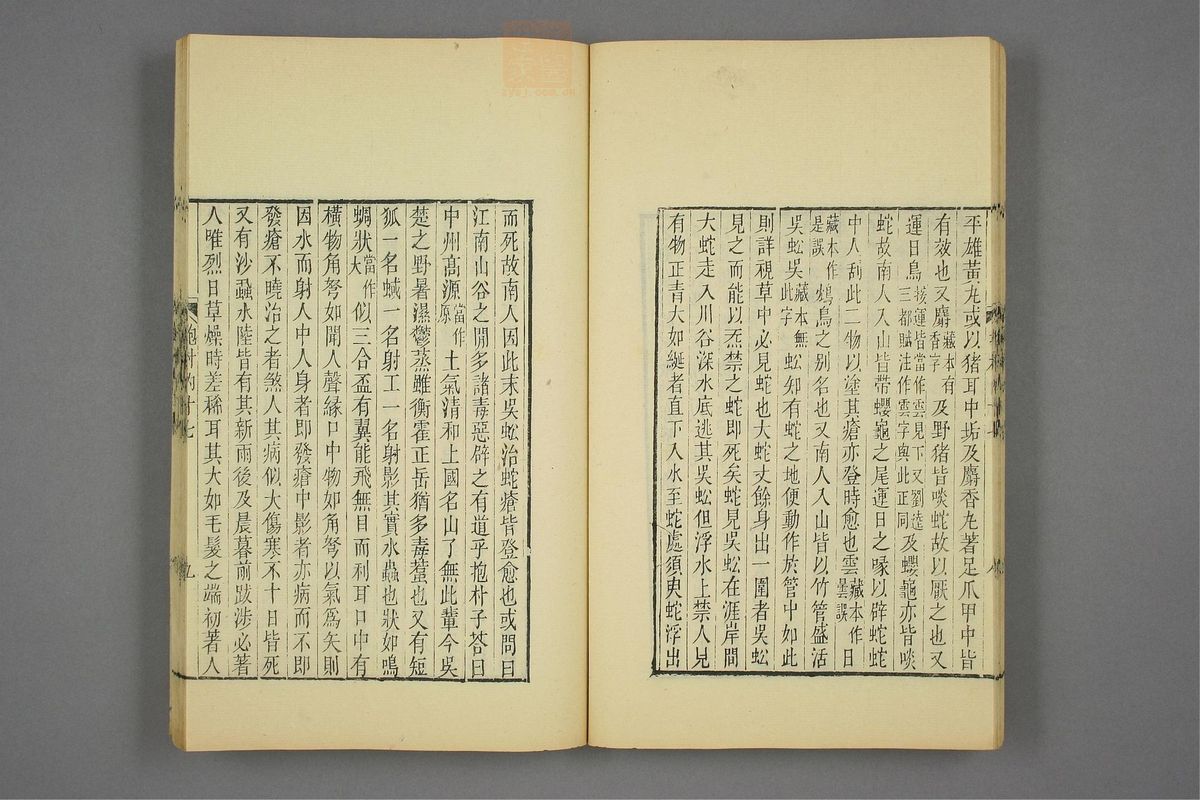 平雄黃丸或以猪耳中垢及麝香丸著足爪甲中皆
有效也又麝藏本有香字及野猪皆啖蛇故以厭之也又
運日鳥按運皆當作雲見下又劉逵三都賦注作雲字與此正同及蠳龜亦皆啖
蛇故南人入山皆帶蠳龜之尾運日之喙以辟蛇蛇
中人刮此二物以塗其瘡亦登時愈也雲藏本作曇誤日
藏本作是誤鴆鳥之別名也又南人入山皆以竹管盛活
吳蚣吳藏本無此字蚣知有蛇之地便動作於管中如此
則詳視草中必見蛇也大蛇丈餘身出一圍者吳蚣
見之而能以炁禁之蛇即死矣蛇見吳蚣在涯岸間
大蛇走入川谷深水底逃其吳蚣但浮水上禁人見
有物正青大如綖者直下入水至蛇處須臾蛇浮出
而死故南人因此末吳蚣治蛇瘡皆登愈也或問曰
江南山谷之間多諸毒惡辟之有道乎抱朴子答曰
中州髙源當作原土氣清和上國名山了無此輩今吳
楚之野暑濕鬱蒸雖衡霍正岳猶多毒䖧也又有短
狐一名蜮一名射工一名射影其實水蟲也狀如鳴
蜩狀當作大似三合盃有翼能飛無目而利耳口中有
橫物角弩如聞人聲緣口中物如角弩以氣爲矢則
因水而射人中人身者即發瘡中影者亦病而不即
發瘡不曉治之者煞人其病似大傷寒不十日皆死
又有沙蝨水陸皆有其新雨後及晨暮前跋涉必著
人唯烈日草燥時差稀耳其大如毛髮之端初著人
抱朴内十七
九